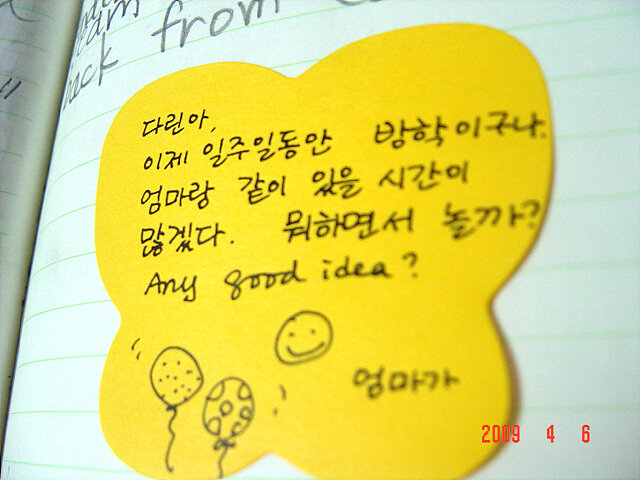 back from
다린아,
이제 일주일동안 방학이구나.
엄마랑 같이 있을 시간이
많겠다. 뭐하면서 놀까?
Any good idea?
엄마가
2009 4 6